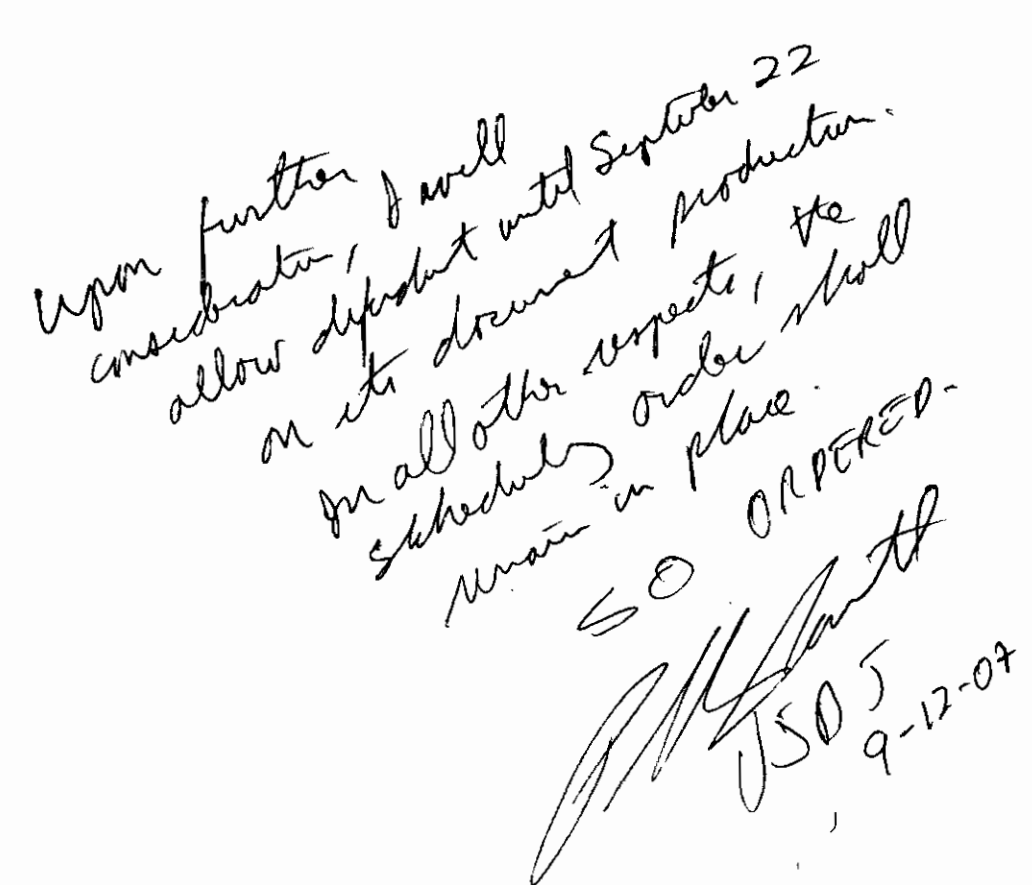 Upon further
consideration, I will
allow defendant until September 22
on its document production.
In all other respects, the
scheduling order shall
remain in place.
SO ORDERED.
USDJ
9-12-07